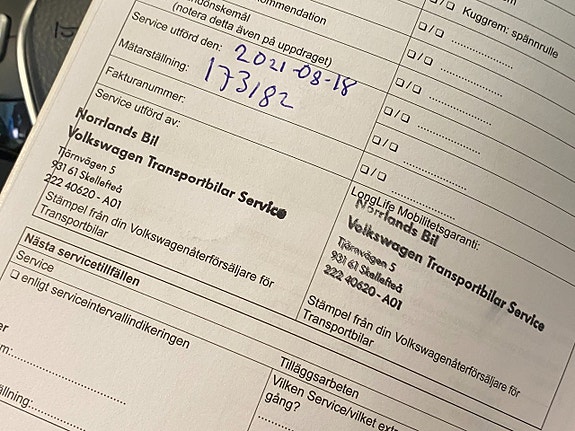 (notera detta även på uppdraget)
Service utförd den: 2021-08-18
Mätarställning: 173182
Fakturanummer:
Service utförd av:
Norrlands Bil
Volkswagen Transportbilar Service
Tjärnvägen 5
931 61 Skellefteå
222 40620 - A01
Stämpel från din Volkswagenåterförsäljare för
Transportbilar
Kuggrem: spännrulle
/
/
/
/
/
/
LongLife Mobilitetsgaranti:
Norrlands Bil
Volkswagen Transportbilar Service
Tjärnvägen 5
931 61 Skellefteå
222 40620 - A01
Stämpel från din Volkswagenåterförsäljare för
Transportbilar
Nästa servicetillfällen
Service
enligt serviceintervallindikeringen
Tilläggsarbeten
Vilken Service/vilket
gång?